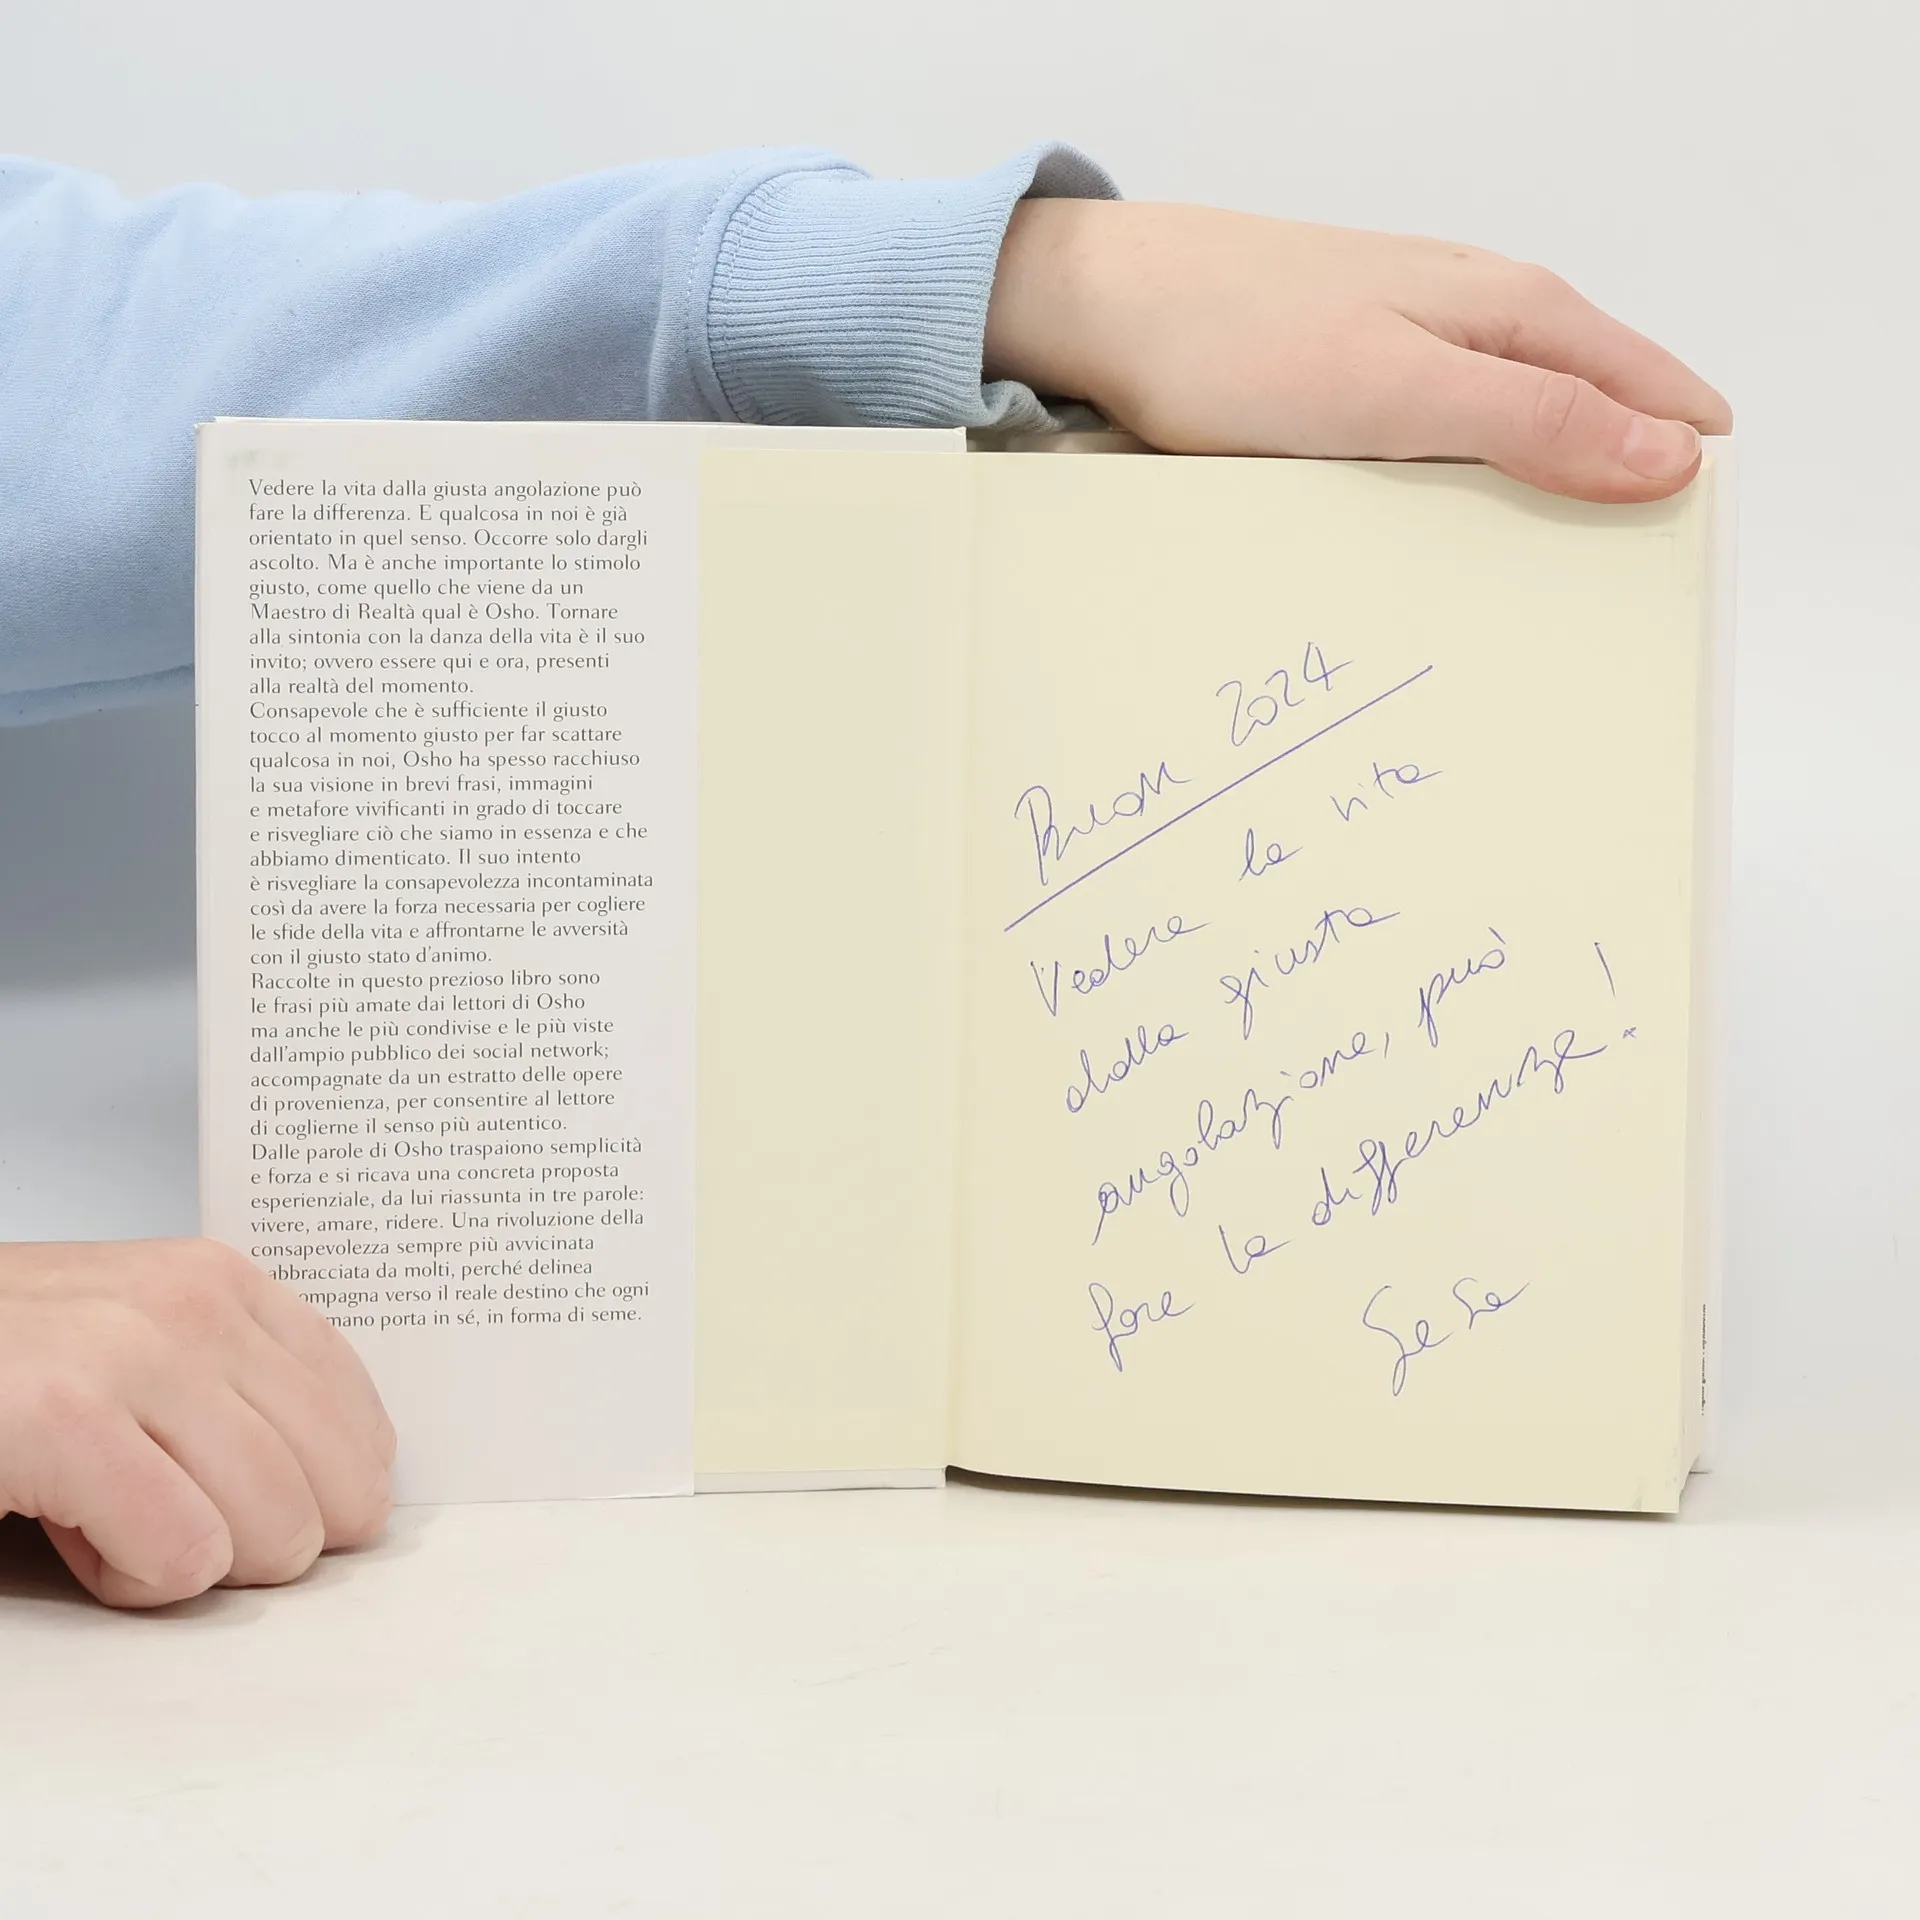 Vedere la vita dalla giusta angolazione può
fare la differenza. E qualcosa in noi è già
orientato in quel senso. Occorre solo dargli
ascolto. Ma è anche importante lo stimolo
giusto, come quello che viene da un
Maestro di Realtà qual è Osho. Tornare
alla sintonia con la danza della vita è il suo
invito; ovvero essere qui e ora, presenti
alla realtà del momento.
Consapevole che è sufficiente il giusto
tocco al momento giusto per far scattare
qualcosa in noi, Osho ha spesso racchiuso
la sua visione in brevi frasi, immagini
e metafore vivificanti in grado di toccare
e risvegliare ciò che siamo in essenza e che
abbiamo dimenticato. Il suo intento
è risvegliare la consapevolezza incontaminata
così da avere la forza necessaria per cogliere
le sfide della vita e affrontarne le avversità
con il giusto stato d'animo.
Raccolte in questo prezioso libro sono
le frasi più amate dai lettori di Osho
ma anche le più condivise e le più viste
dall'ampio pubblico dei social network;
accompagnate da un estratto delle opere
di provenienza, per consentire al lettore
di coglierne il senso più autentico.
Dalle parole di Osho traspaiono semplicità
e forza e si ricava una concreta proposta
esperienziale, da lui riassunta in tre parole:
vivere, amare, ridere. Una rivoluzione della
consapevolezza sempre più avvicinata
abbracciata da molti, perché delinea
ompagna verso il reale destino che ogni
mano porta in sé, in forma di seme.
Buon 2024
Vedere la vita
dalla giusta
angolazione, può
fare la differenza!